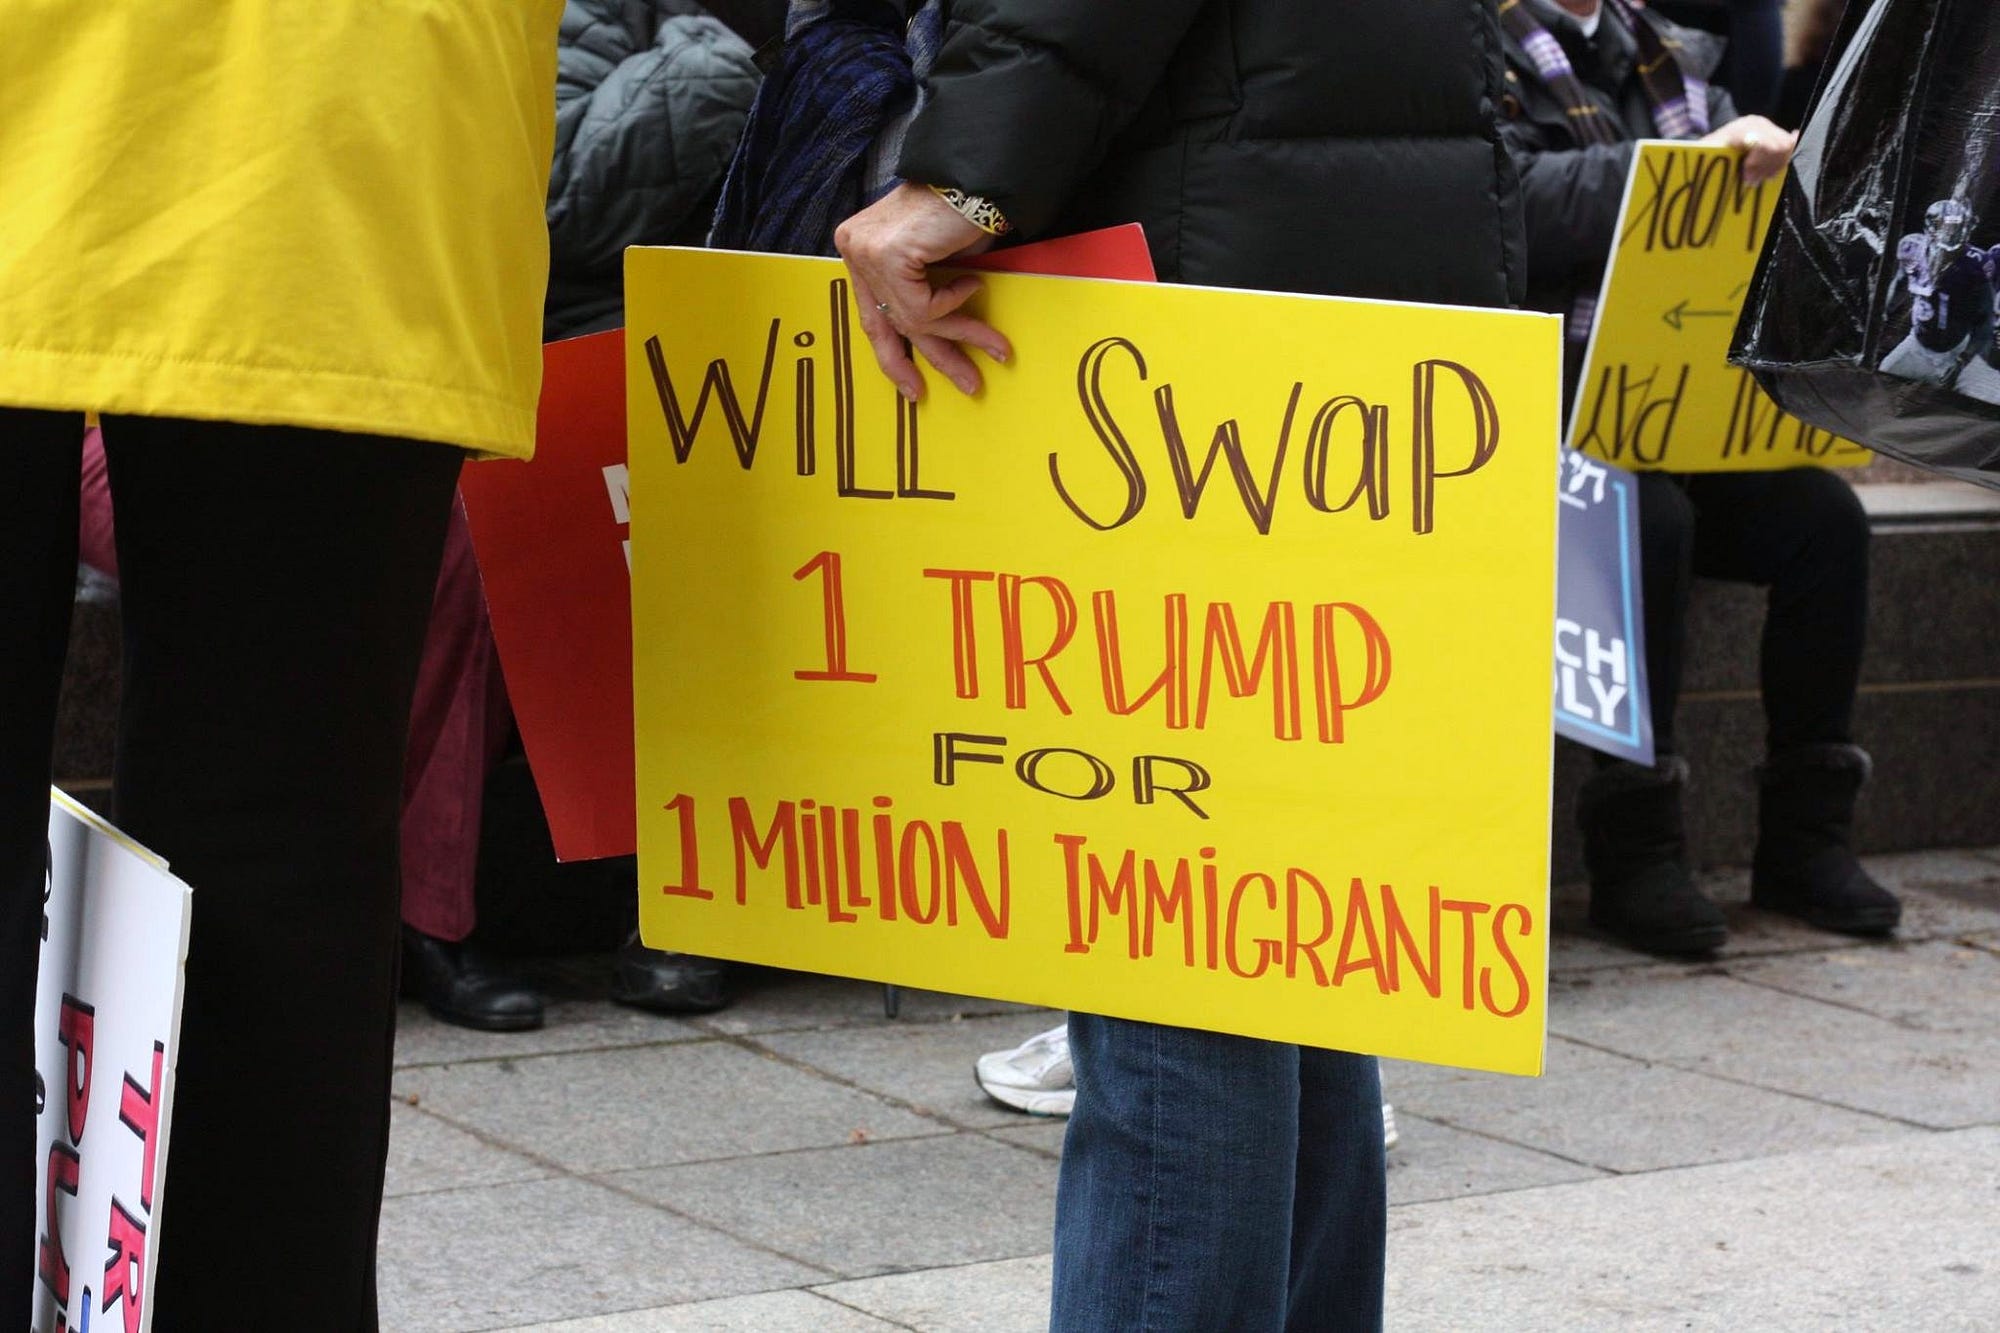 WiLL SWaP
1 TRUMP
FOR
1 MiLLiON IMMiGRANTS
EQUAL PAY
WORK
CH
LY
TR
PU